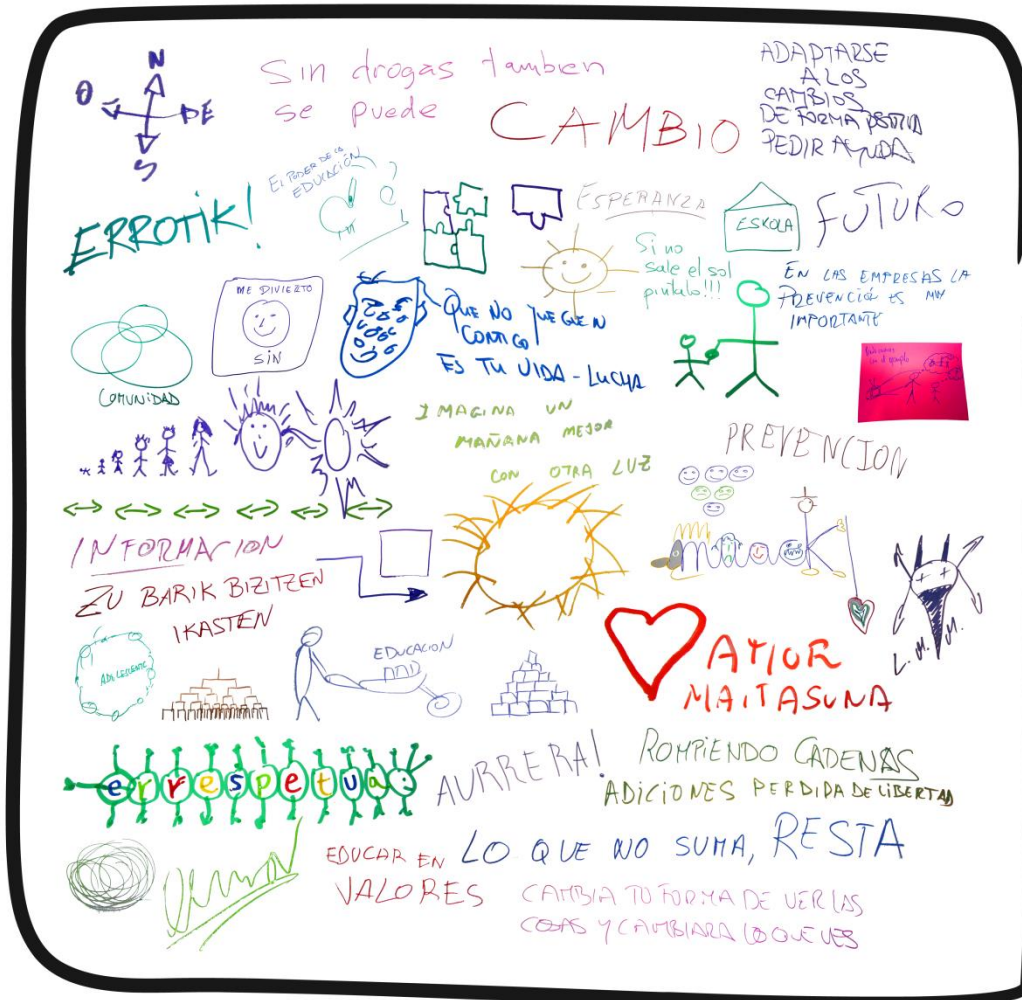 N
O
DE
S
Sin drogas tambien
se puede
CAMBIO
ADAPTARSE
A LOS
CAMBIOS
DE FORMA POSITIVA
PEDIR AYUDA
ERROTIK!
EL PODER DE LA
EDUCACIÓN
ESPERANZA
ESKOLA
FUTURO
Si no
sale el sol
pintalo!!!
EN LAS EMPRESAS LA
PREVENCIÓ ES MUY
IMPORTANTE
ME DIVIERTO
SIN
QUE NO JUEGUEN
CONTIGO!
ES TU VIDA - LUCHA
COMUNIDAD
IMAGINA UN
MAÑANA MEJOR
CON OTRA LUZ
PREVENCION
INFORMACION
ZU BARIK BIZITZEN
IKASTEN
L. M. M.
ADOLESCENTE
EDUCACION
AMOR
MAITASUNA
errespetua
AURRERA!
ROMPIENDO CADENAS
ADICIONES PERDIDA DE LIBERTAD
EDUCAR EN
VALORES
LO QUE NO SUMA, RESTA
CAMBIA TU FORMA DE VER LAS
COSAS Y CAMBIARA LO QUE VES